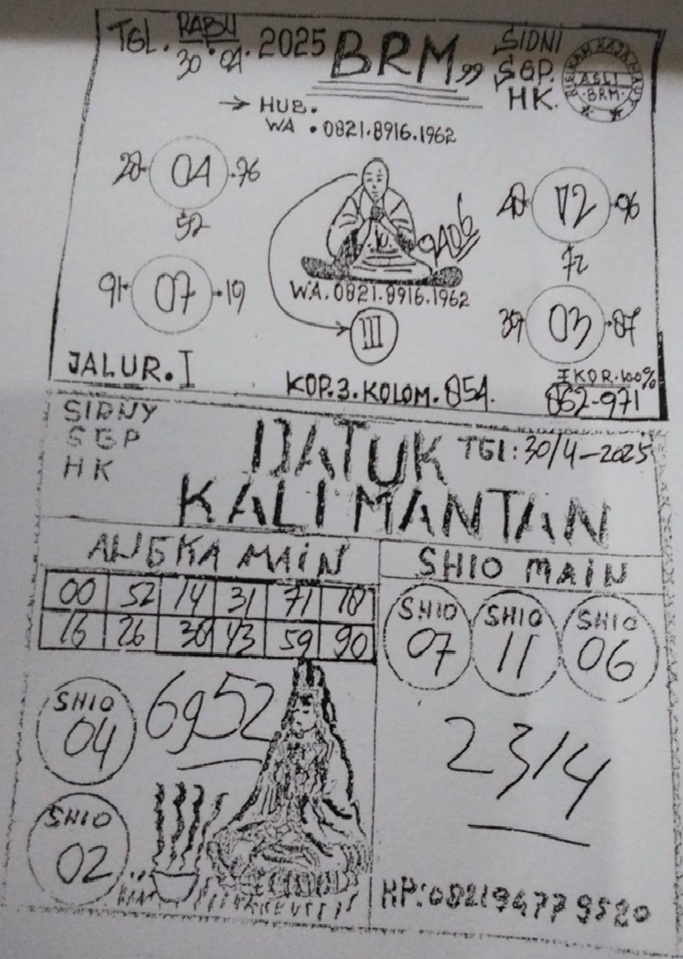 TGL. RABU 30.04.2025 BRM 99 SIDNI
SGP.
HK.
ASLI
BRM
→ HUB.
WA . 0821.8916.1962
04
52
12 96
72
9406
91 07 19
WA.0821.8916.1962
III
03 87
JALUR. I
KOP.3.KOLOM. 854.
EKOR.100%
862-971
SIDNY
SGP
HK
DATUK TGl: 30/4-2025
KALIMANTAN
ANGKA MAIN
SHIO MAIN
00 52 14 31 71
16 26 43 59 90
SHIO 07
SHIO 11
SHIO 06
SHIO 04
6952
2314
SHIO 02
HP:082194779520